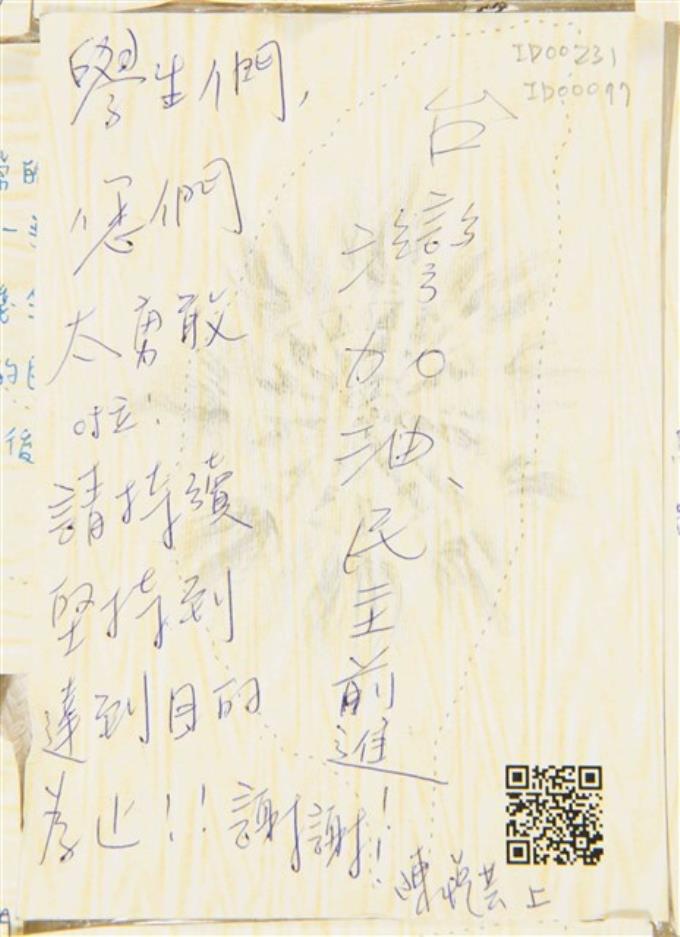 ID00231
ID00097
學生們,
您們
太勇敢
啦!
請持續
堅持到
達到目的
為止!!謝謝!
台灣加油、民主前進
陳悅芸 上